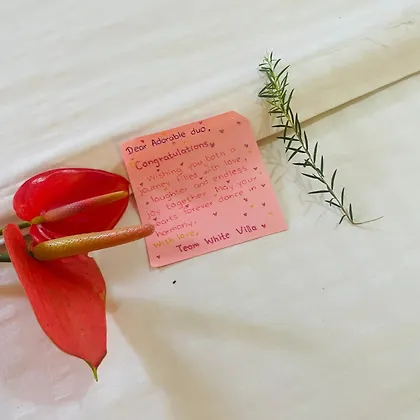 Dear Adorable duo,
Congratulations,
Wishing you both a
journey filled with love,
laughter and endless
joy together. May your
hearts forever dance in
harmony.
With love,
Team White Villa